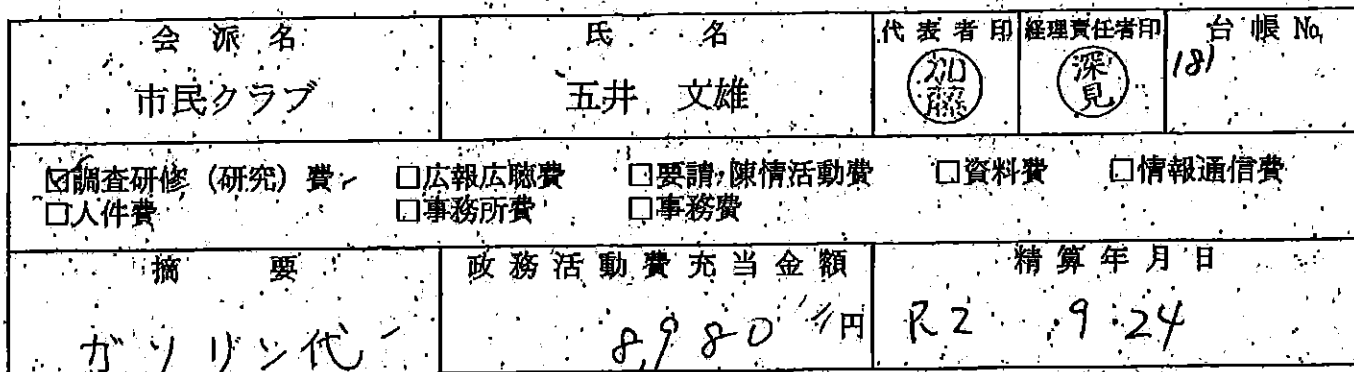 会派名 氏名 代表者印 経理責任者印 台帳No.
市民クラブ 五井 文雄 加藤 深見 181
☑調査研修（研究）費 □広報広聴費 □要請・陳情活動費 □資料費 □情報通信費
□人件費 □事務所費 □事務費
摘要 政務活動費充当金額 精算年月日
ガソリン代 8,980円 R2.9.24